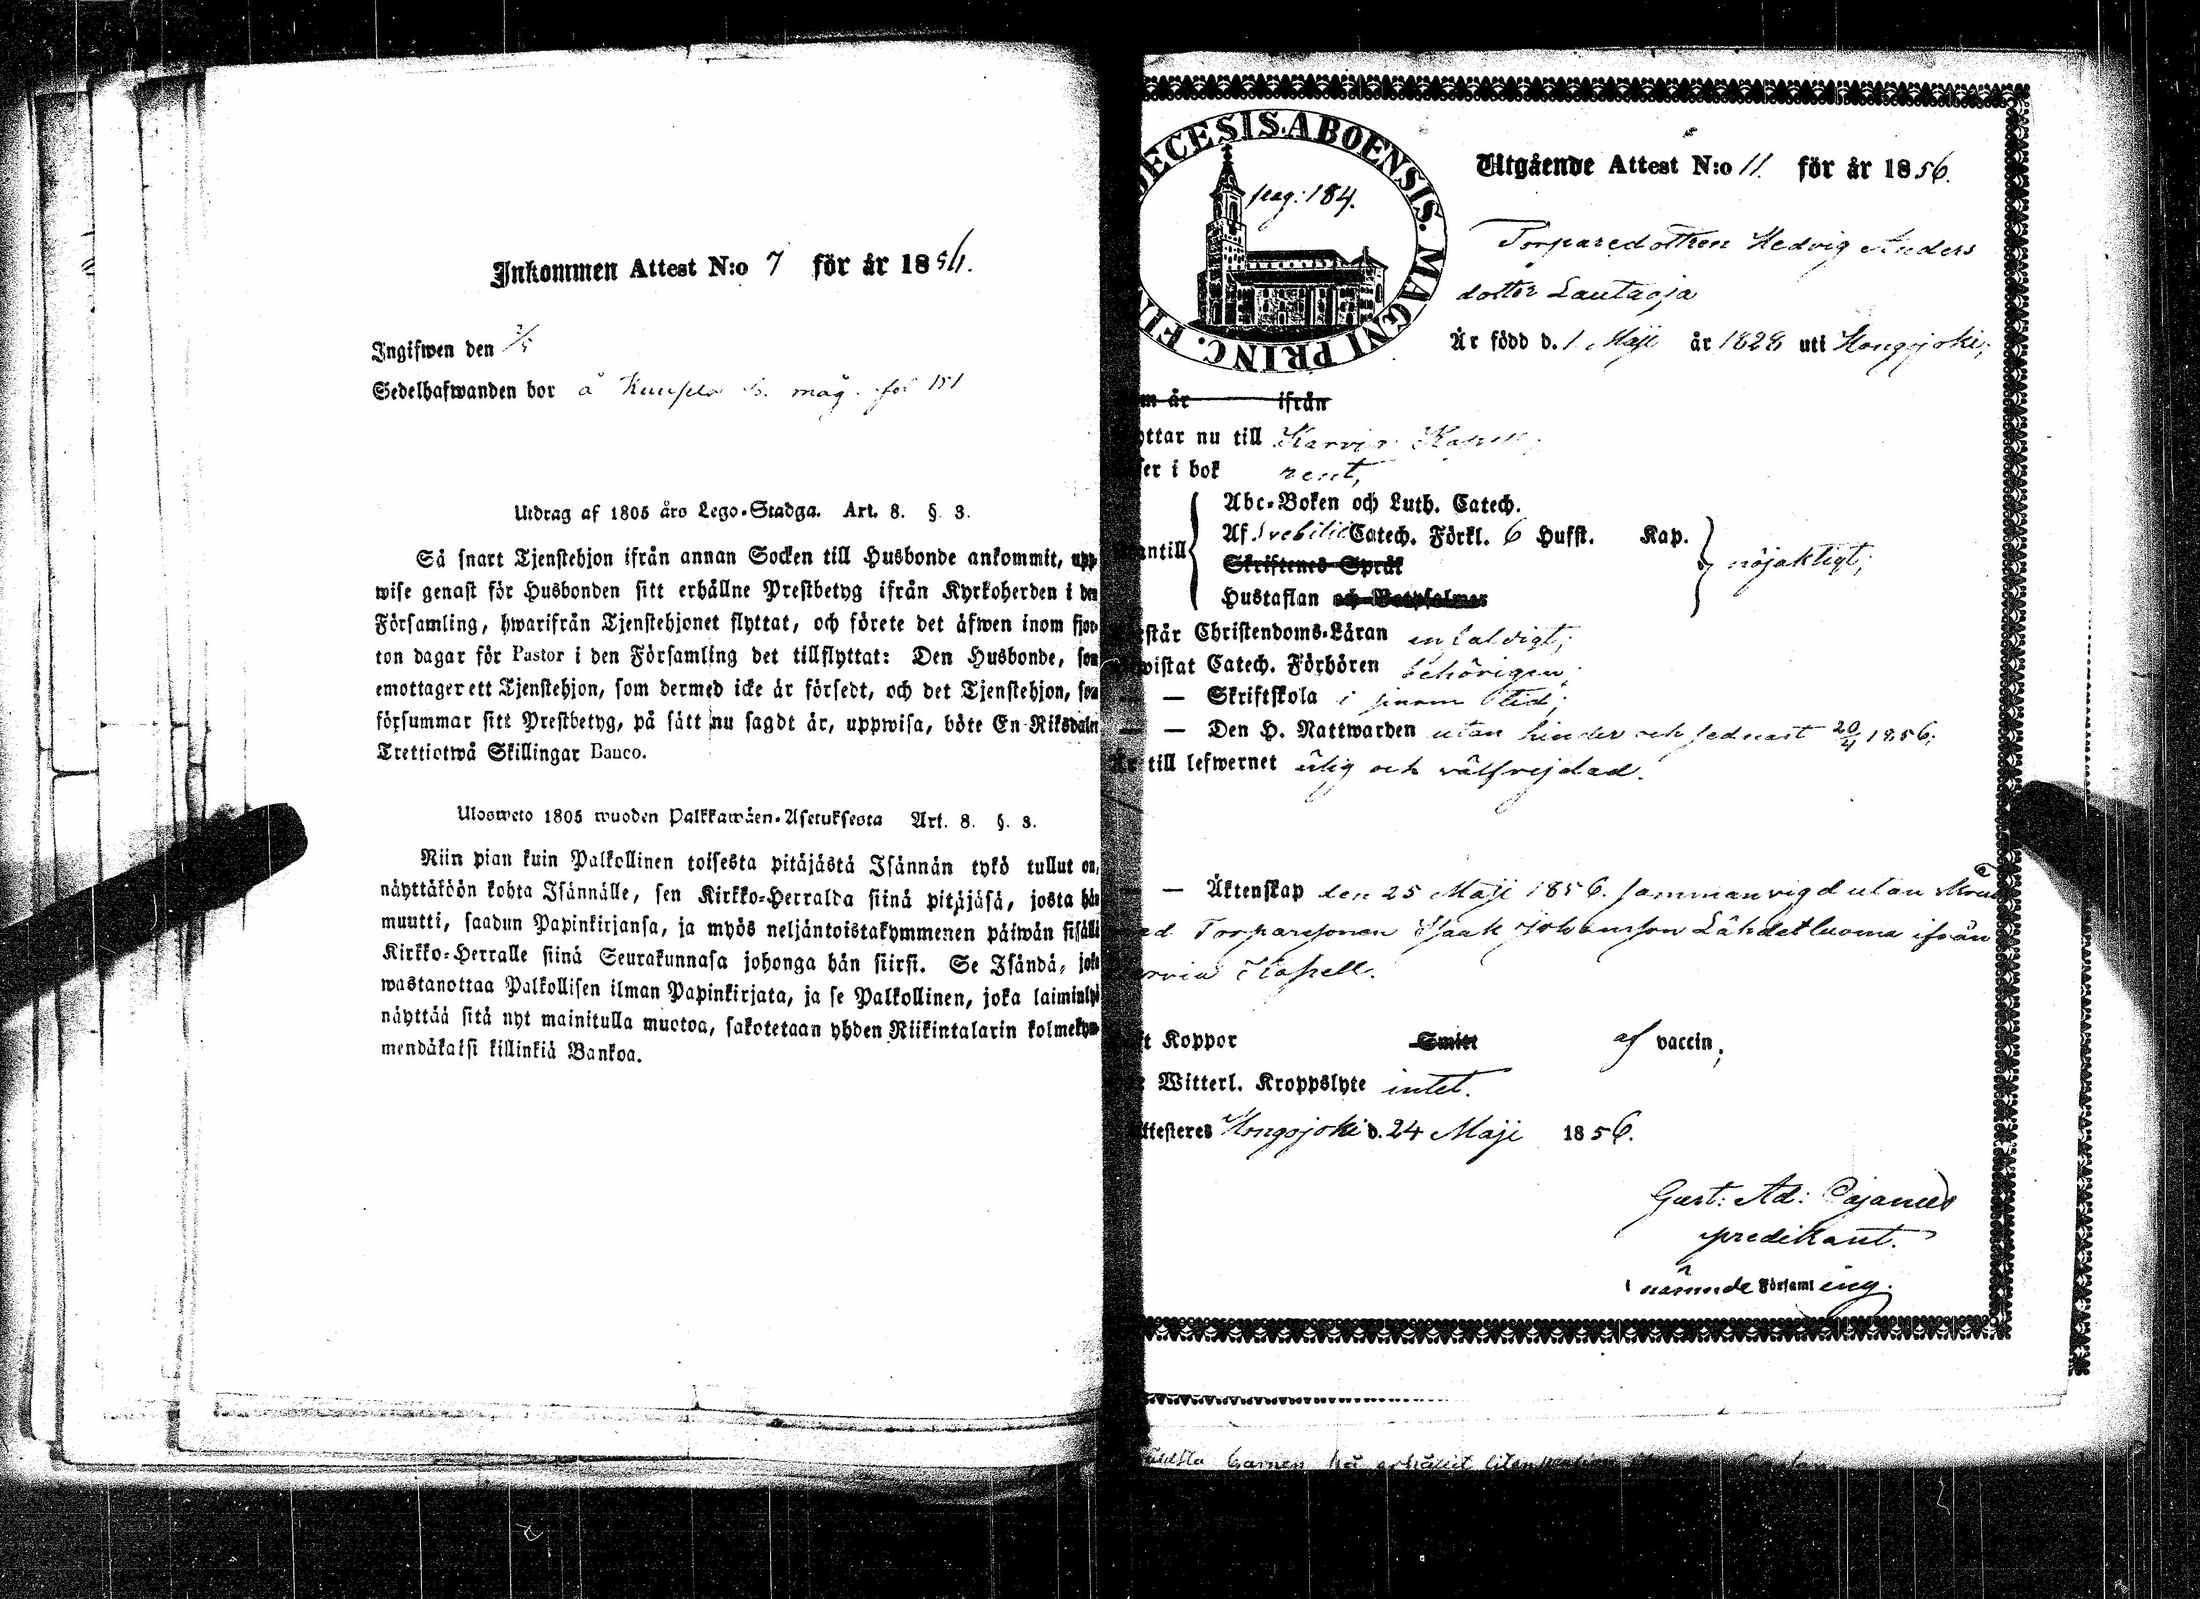 Inkommen Attest N:o 7 för år 1856.
Ingifwen den
Sedelhafwanden bor å
Utdrag af 1805 års Lego-Stadga. Art. 8. § 3.
Så snart Tjenstehjon ifrån annan Socken till Husbonde ankommit, upp
wise genast för Husbonden sitt erhållne Prestbetyg ifrån Kyrkoherden i den
Församling, hwarifrån Tjenstehjonet flyttat, och förete det äfwen inom fjor-
ton dagar för Pastor i den Församling det tillflyttat: Den Husbonde, som
emottager ett Tjenstehjon, som dermed icke är försedt, och det Tjenstehjon, som
försummar sitt Prestbetyg, på sätt nu sagdt är, uppwisa, böte En Riksdaler
Trettiotwå Skillingar Banco.
Ulosweto 1805 wuoden Palkkawäen-Asetuksesta Art. 8. §. 3.
Niin pian kuin Palkollinen toisesta pitäjästä Isännän tykö tullut on,
näyttäköön kohta Isännälle, sen Kirkko-Herralda siinä pitäjäsä, josta hän
muutti, saadun Papinkirjansa, ja myös neljäntoistakymmenen päiwän sisällä
Kirkko-Herralle siinä Seurakunnasa johonga hän siirsi. Se Isändä, joka
wastanottaa Palkollisen ilman Papinkirjata, ja se Palkollinen, joka laiminlyö
näyttää sitä nyt mainitulla muotoa, sakotetaan yhden Riikintalarin kolmekym-
mendäkaksi killinkiä Bankoa.
DECESIS. ABOENSIS. MAGNI PRINC. FI
pag: 184.
Utgående Attest N:o 11. för år 1856.
Torparedottren Hedvig Anders
dotter Lautaoja
Är född d. 1 Maji år 1828 uti Hongojoki;
m år ifrån
ttar nu till Karvia Kapell;
ser i bok rent,
Abc-Boken och Luth. Catech.
Af Svebilii Catech. Förkl. 6 Hufst. Kap.
antill nöjaktigt;
Skriftenes Språk
Hustaflan och Botpsalmer
står Christendoms-Läran enfaldigt;
wistat Catech. Förhören behörigen;
— Skriftskola i sinom tid;
— — Den H. Nattwarden utan hinder och sednast 20/4 1856;
Är till lefwernet ärlig och välfrejdad.
— — Äktenskap den 25 Maji 1856. sammanvigd utan
ed Torparesonen Isaak Johansson Lähdetluoma ifrån
arvia Kapell.
ft Koppor Smitt af vaccin;
Witterl. Kroppslyte intet.
Attesteres Hongojoki d. 24 Maji 1856.
Gust: Ad: Cajanus
predikant.
i nämnde Församling.